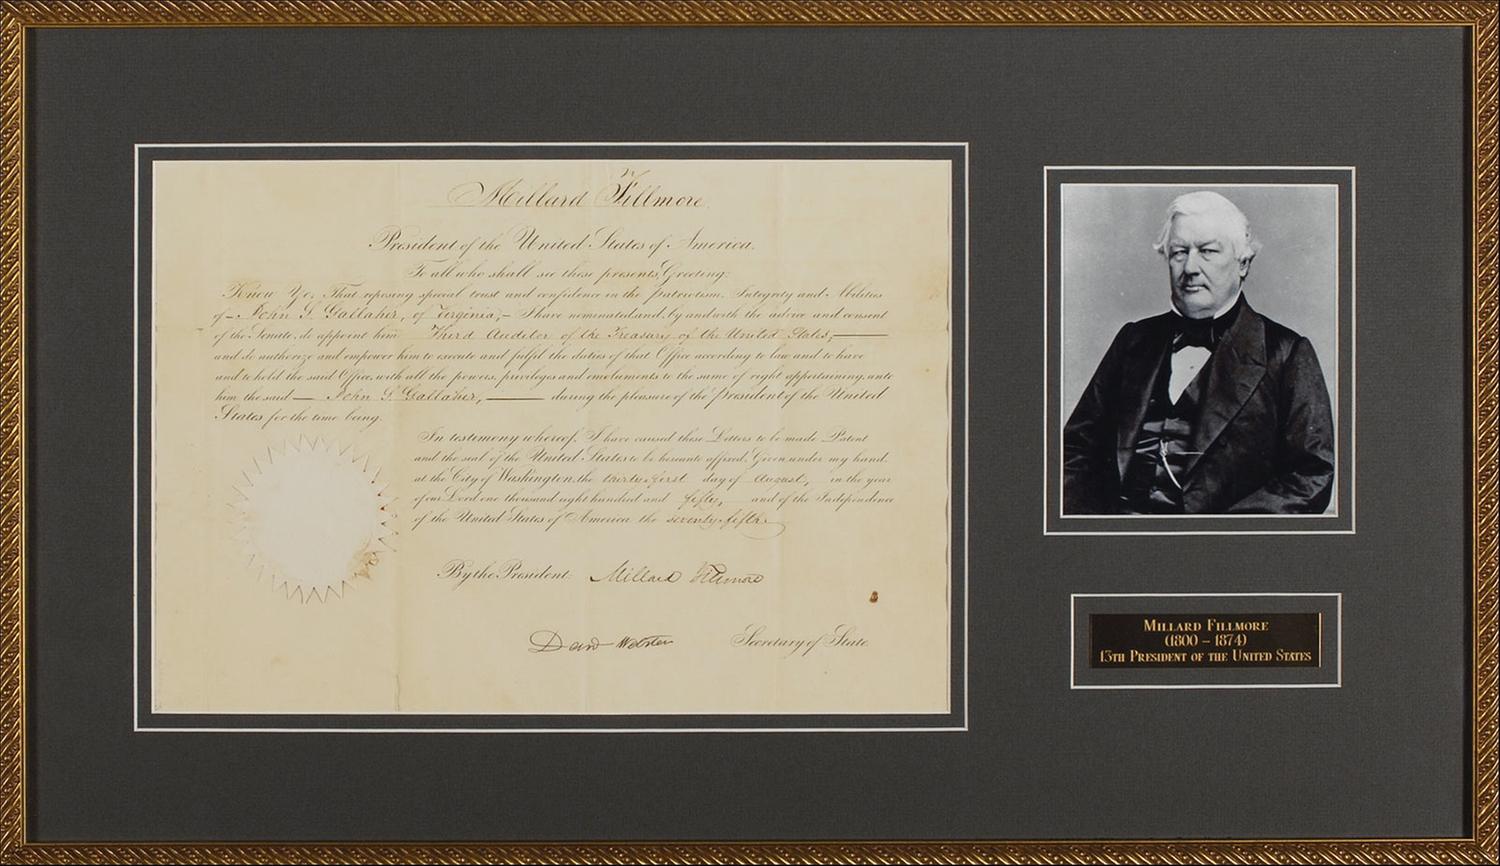 Millard Fillmore
President of the United States of America.
To all who shall see these presents, Greeting:
Know Ye, That reposing special trust and confidence in the Patriotism, Integrity and Abilities
of — John S. Gallaher, of Virginia, — I have nominated, and, by and with the advice and consent
of the Senate, do appoint him Third Auditor of the Treasury of the United States, —
and do authorize and empower him to execute and fulfil the duties of that Office according to law and to have
and to hold the said Office, with all the powers, privileges and emoluments to the same of right appertaining, unto
him the said — John S. Gallaher, — during the pleasure of the President of the United
States for the time being.
In testimony whereof, I have caused these Letters to be made Patent
and the seal of the United States to be hereunto affixed. Given under my hand
at the City of Washington the thirty first day of August, in the year
of our Lord one thousand eight hundred and fifty, and of the Independence
of the United States of America the seventy-fifth.
By the President: Millard Fillmore
Danl Webster Secretary of State.
MILLARD FILLMORE
(1800 – 1874)
13TH PRESIDENT OF THE UNITED STATES